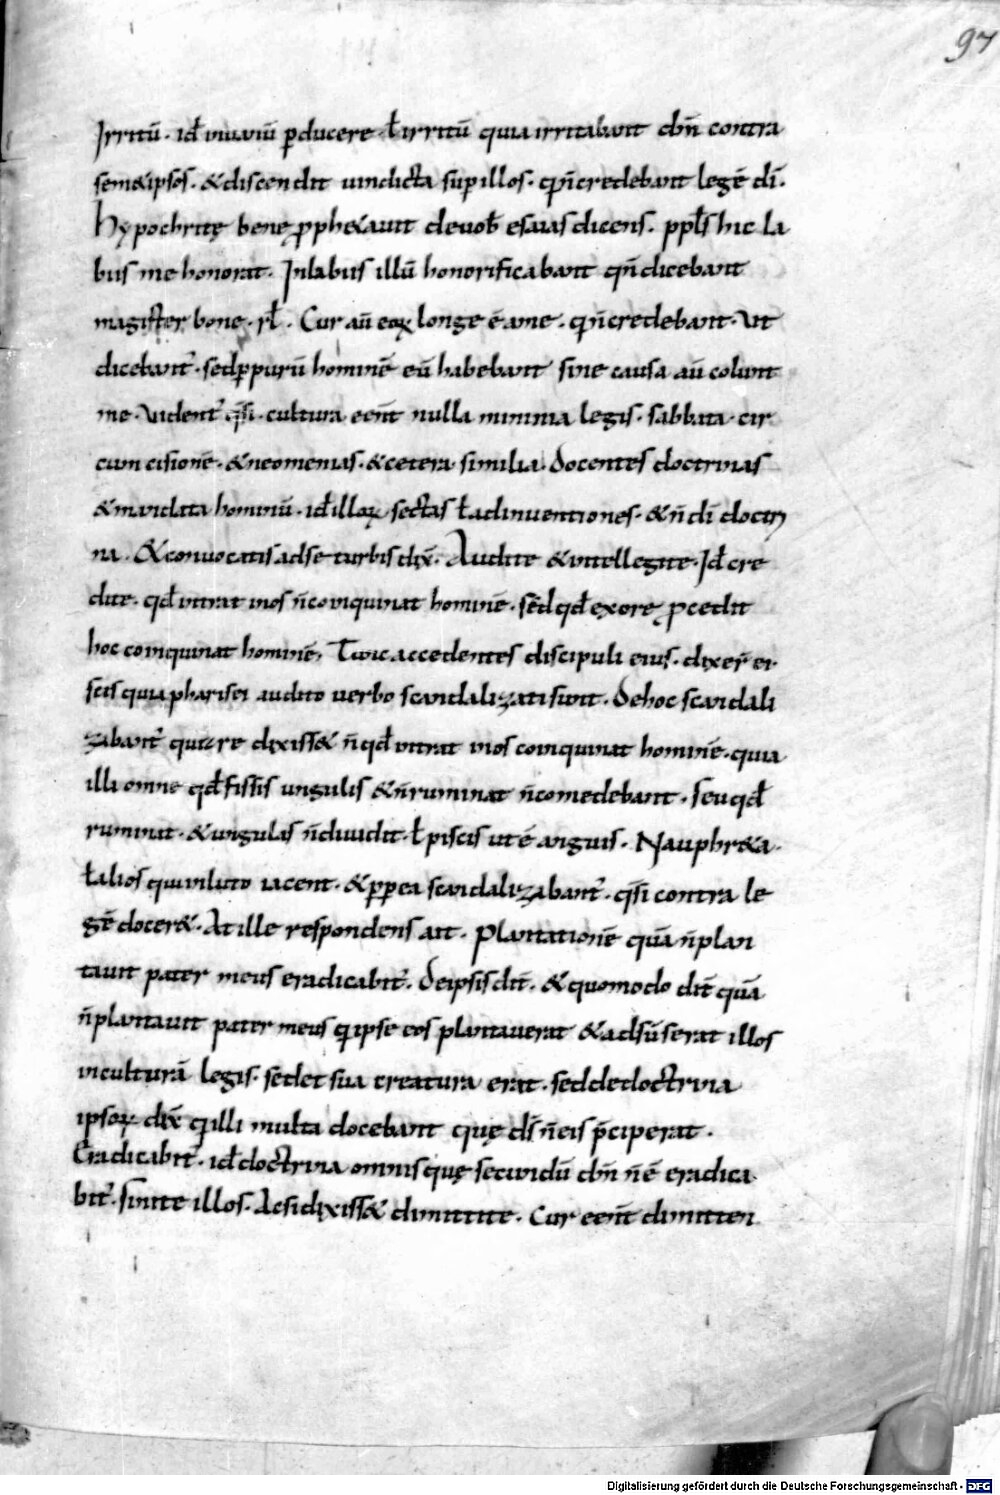 97
Irritū · id̄ inuaniū p̄ducere · ł irritū quia irritabant dn̄m contra
sem&ipsos · & discendit uindicta sup illos · q̄ n̄ credebant legē dī ·
hypochritę bene prophetauit deuob̄ esaias dicens · ppl̄s hic la
biis me honorat · Inlabiis illū honorificabant qn̄ dicebant
magister bone · rl̄ · Cor aū eoꝝ longe ē ame · q̄ n̄ credebant · ut
dicebant̄ · sed p̄ purū hominē eū habebant sine causa aū colunt
me · uident̄ q̄si · cultura eēnt nulla minima legis · sabbata · cir
cumcisionē · & neomenias · & cetera similia · docentes doctrinas
& mandata hominū · id̄ illoꝝ sectas ł adinuentiones · & n̄ dī doctri
na · & conuocatis adse turbis dix̄ · Audite & intellegite · Id̄ cre
dite · qd̄ intrat in os n̄ coinquinat hominē · sed qd̄ exore procedit
hoc coinquinat hominē, Tunc accedentes discipuli eius · dixer̄ ei ·
scis quia pharisei audito uerbo scandalizati sunt · dehoc scandali
zabant̄ quare dixiss& n̄ qd̄ intrat in os coinquinat hominē · quia
illi omne qd̄ fissis ungulis & n̄ ruminat n̄ comedebant · seu qd̄
ruminat · & ungulas n̄ diuidit · ł piscis ut ē anguis · Naupbr&a ·
ł alios qui inluto iacent · & pp̄ ea scandalizabant̄ · q̄si contra le
gē docer& · At ille respondens ait · Plantationē quā n̄ plan
tauit pater meus eradicabit̄ · de ipsis dīt · & quomodo dīt quā
n̄ plantauit pater meus q̄ ipse eos plantauerat & adsūserat illos
in culturā legis · sed et sua creatura erat · sed de doctrina
ipsoꝝ dix̄ q̄ illi multa docebant quę dš n̄ eis p̄ciperat ·
Eradicabit̄ · id̄ doctrina omnis quę secundū dn̄m n̄ ē eradica
bit̄ · sinite illos · Acsi dixiss& dimittite · Cur eēnt dimitten
Digitalisierung gefördert durch die Deutsche Forschungsgemeinschaft - DFG